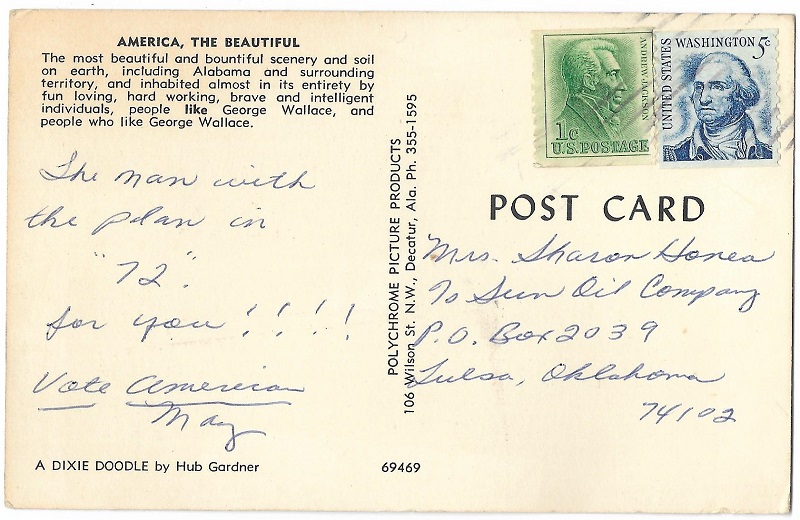 AMERICA, THE BEAUTIFUL
The most beautiful and bountiful scenery and soil
on earth, including Alabama and surrounding
territory, and inhabited almost in its entirety by
fun loving, hard working, brave and intelligent
individuals, people like George Wallace, and
people who like George Wallace.
The man with
the plan in
"72"
for you ! ! ! !
Vote American
May
A DIXIE DOODLE by Hub Gardner
69469
POLYCHROME PICTURE PRODUCTS
106 Wilson St. N.W., Decatur, Ala. Ph. 355-1595
ANDREW JACKSON
1c
U.S. POSTAGE
UNITED STATES
WASHINGTON 5c
POST CARD
Mrs. Sharon Honea
% Sun Oil Company
P.O. Box 2039
Tulsa, Oklahoma
74102